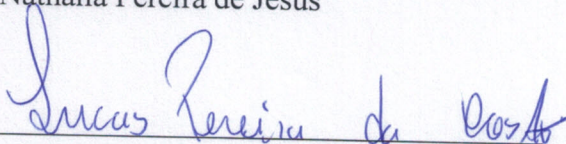 Nathália Pereira de Jesus
Lucas Pereira da Costa